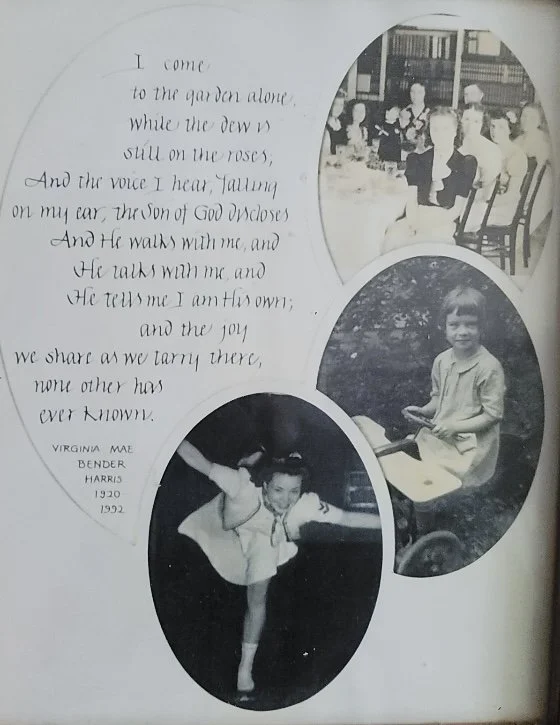 I come
to the garden alone,
while the dew is
still on the roses;
And the voice I hear, falling
on my ear, the Son of God discloses
And He walks with me, and
He talks with me, and
He tells me I am His own;
and the joy
we share as we tarry there,
none other has
ever known.
VIRGINIA MAE
BENDER
HARRIS
1920
1992